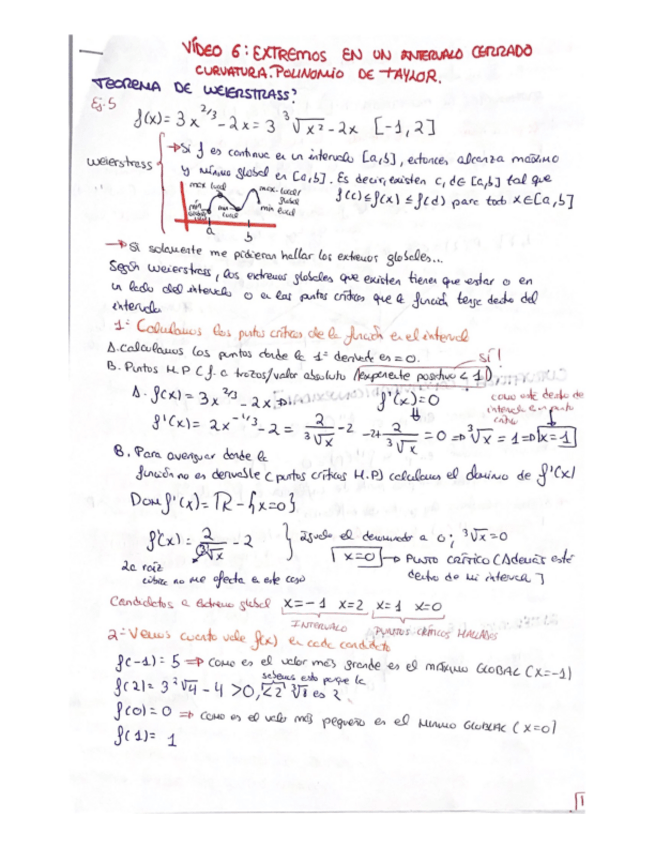 VÍDEO 6: EXTREMOS EN UN INTERVALO CERRADO
CURVATURA. POLINOMIO DE TAYLOR.
TEOREMA DE WEIERSTRASS?
Ej. 5
f(x) = 3x^2/3 - 2x = 3 ∛x² - 2x [-1, 2]
Weierstrass
→ Si f es continua en un intervalo [a,b], entonces alcanza máximo
y mínimo global en [a,b]. Es decir, existen c, d ∈ [a,b] tal que
f(c) ≤ f(x) ≤ f(d) para todo x ∈ [a,b]
max local
max. local/
global
min local
a
b
→ Si solamente me pidieran hallar los extremos globales...
Según Weierstrass, los extremos globales que existen tienen que estar o en
un lado del intervalo o en los puntos críticos que la función tenga dentro del
intervalo
1º Calculamos los puntos críticos de la función en el intervalo
A. calculamos los puntos donde la 1ª derivada es = 0.
SÍ!
B. Puntos M.P (f. a trozos/valor absoluto/exponente positivo < 1).
A. f(x) = 3x^2/3 - 2x
f'(x) = 0
como está dentro de
intervalo es un punto
crítico
f'(x) = 2x^-1/3 - 2 = 2/∛x - 2
-2 + 2/∛x = 0 ⇒ ∛x = 1 ⇒ x = 1
B. Para averiguar donde la
función no es derivable (puntos críticos M.P) calculamos el dominio de f'(x)
Dom f'(x) = ℝ - {x=0}
f'(x) = 2/∛x - 2 } Igualo el denominador a 0; ∛x = 0
x = 0 → PUNTO CRÍTICO (Además está
dentro de mi intervalo)
La raíz
cúbica no me afecta en este caso
Candidatos a extremo global x = -1 x = 2 x = 1 x = 0
INTERVALO
PUNTOS CRÍTICOS HALLADOS
2º Vemos cuanto vale f(x) en cada candidato
f(-1) = 5 ⇒ como es el valor más grande es el MÁXIMO GLOBAL (x = -1)
sabemos esto porque la
f(2) = 3 ∛4 - 4 > 0, < 2 ∛1 es 2
f(0) = 0 ⇒ como es el valor más pequeño es el MÍNIMO GLOBAL (x = 0)
f(1) = 1